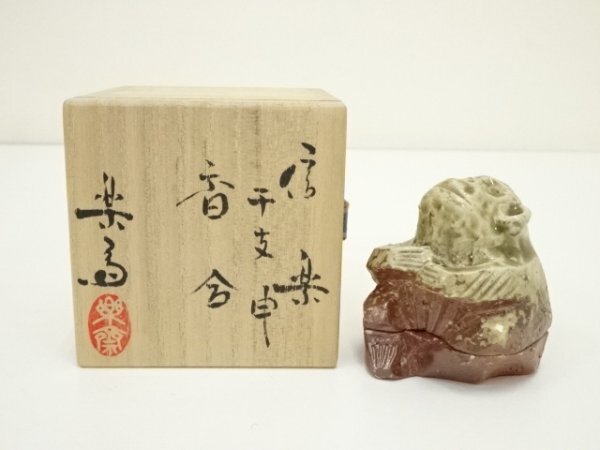 信楽
干支申
香合
楽斎
楽斎